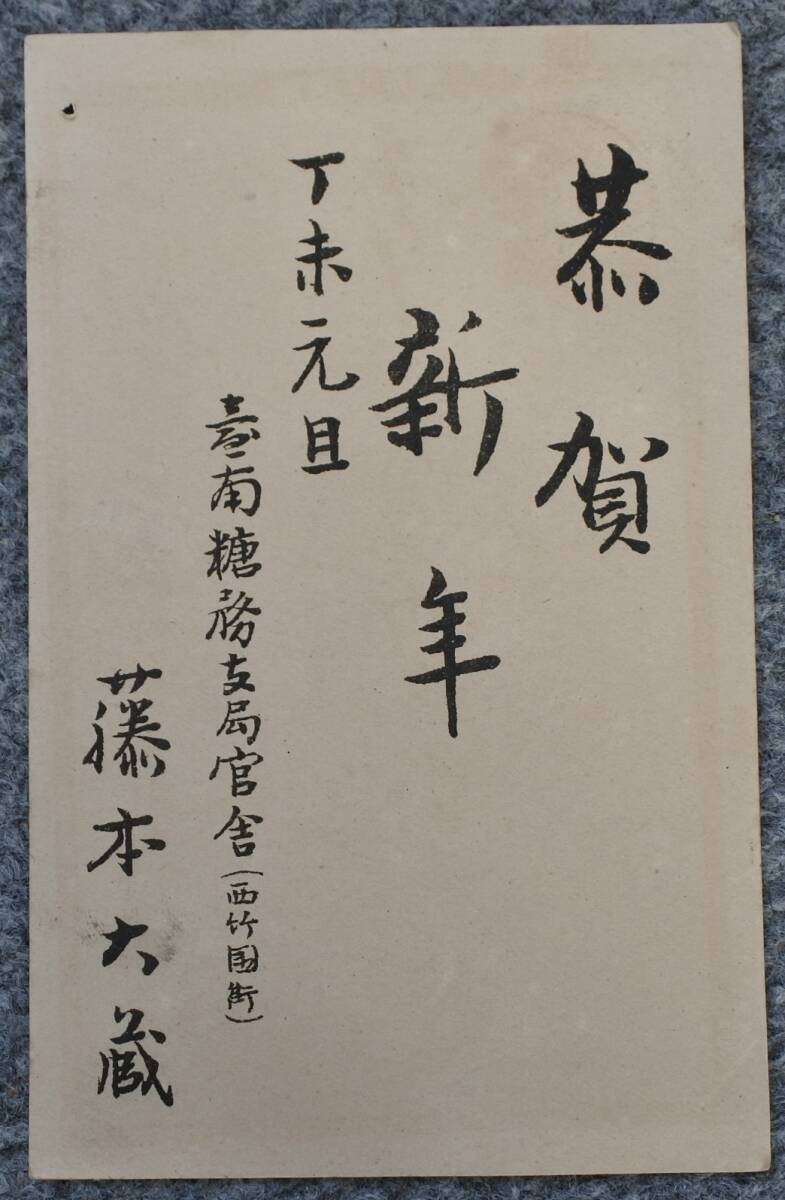 恭賀
新年
丁未元旦
臺南糖務支局官舎(西竹囲街)
藤本大蔵